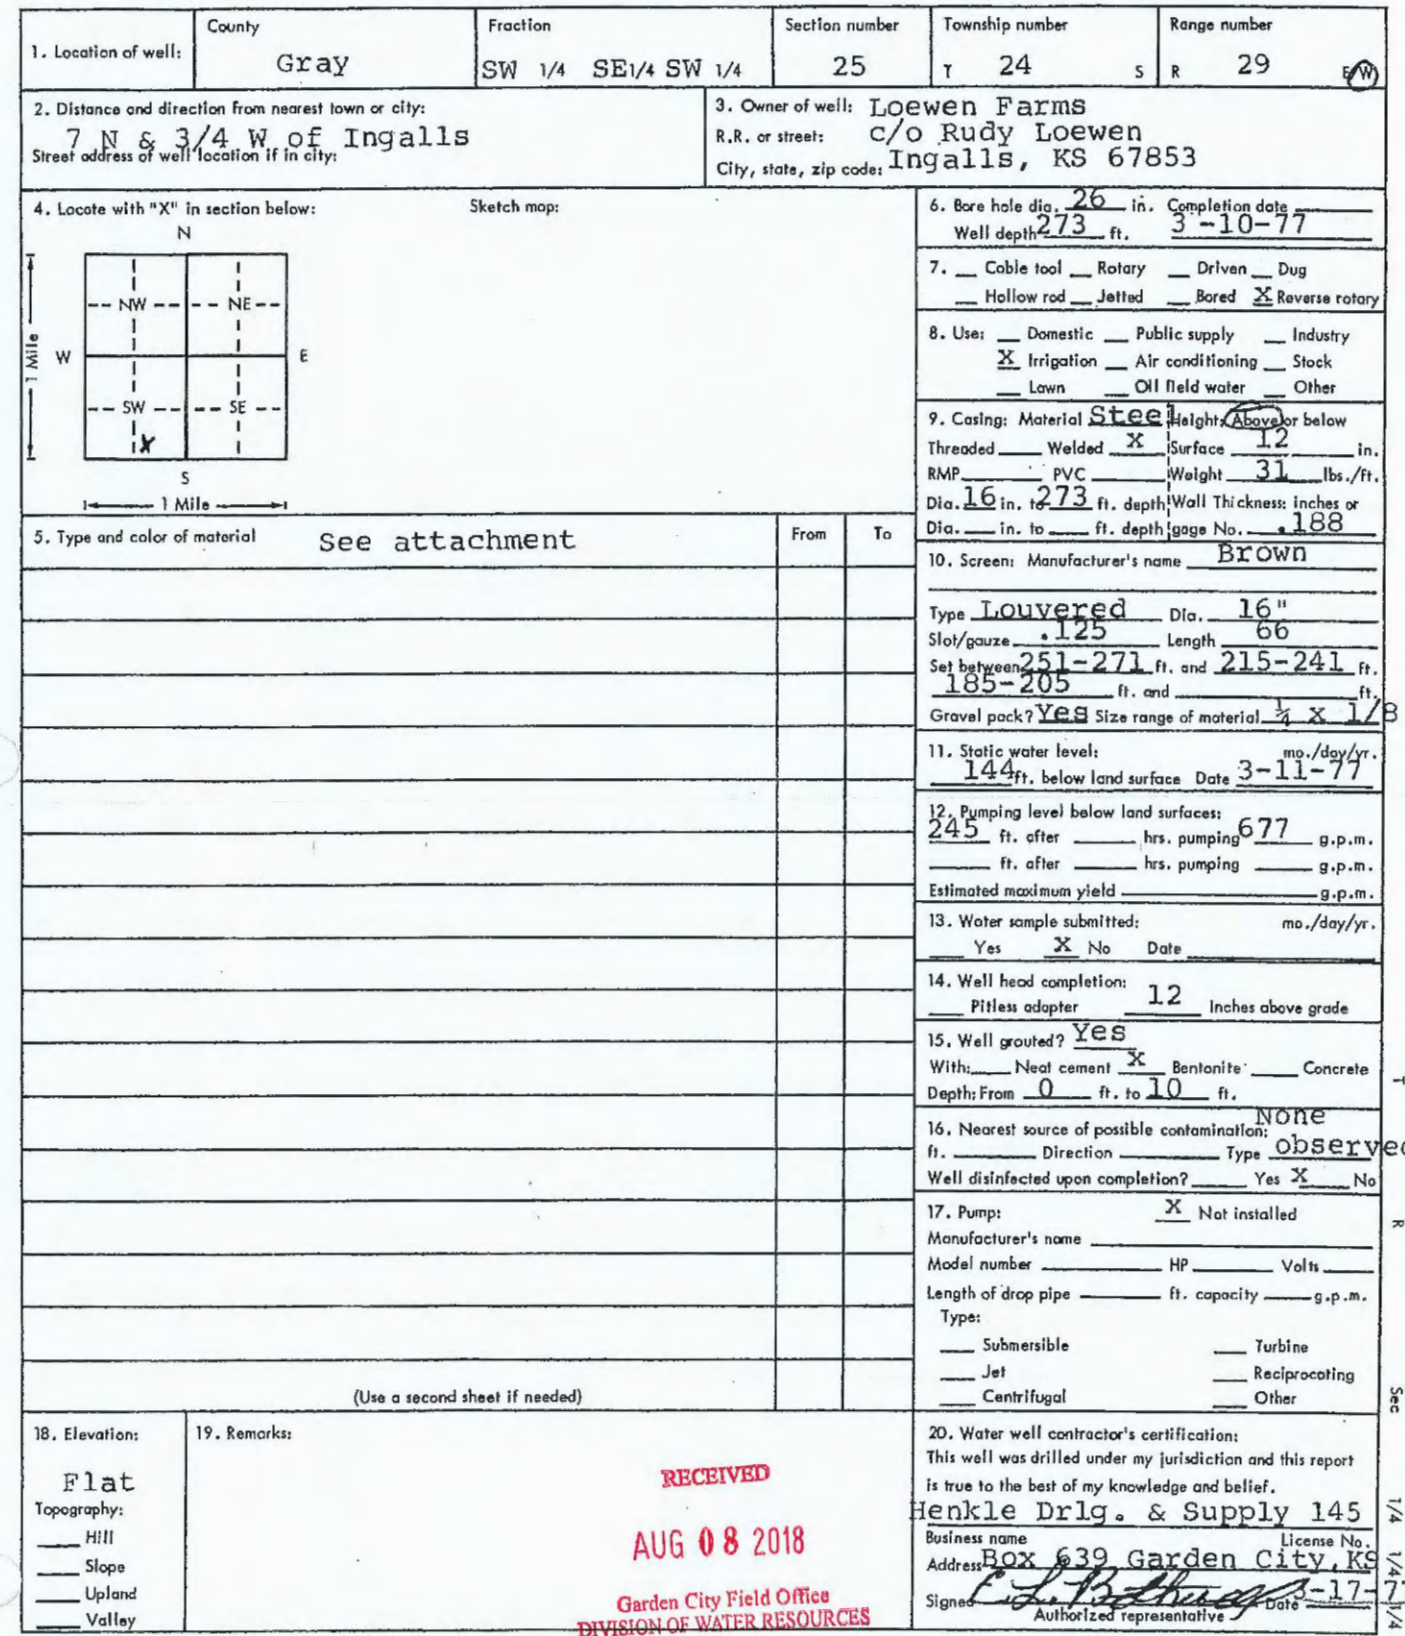 1. Location of well:
County
Gray
Fraction
SW 1/4 SE1/4 SW 1/4
Section number
25
Township number
T 24 S
Range number
R 29 E/W
2. Distance and direction from nearest town or city:
7 N & 3/4 W of Ingalls
Street address of well location if in city:
3. Owner of well: Loewen Farms
R.R. or street: c/o Rudy Loewen
City, state, zip code: Ingalls, KS 67853
4. Locate with "X" in section below:
Sketch map:
N
NW NE
W E
1 Mile
SW SE
X
S
1 Mile
5. Type and color of material See attachment From To
(Use a second sheet if needed)
6. Bore hole dia. 26 in. Completion date
Well depth 273 ft. 3-10-77
7. Cable tool Rotary Driven Dug
Hollow rod Jetted Bored X Reverse rotary
8. Use: Domestic Public supply Industry
X Irrigation Air conditioning Stock
Lawn Oil field water Other
9. Casing: Material Steel Height: Above or below
Threaded Welded X Surface 12 in.
RMP PVC Weight 31 lbs./ft.
Dia. 16 in. to 273 ft. depth Wall Thickness: inches or
Dia. in. to ft. depth gage No. .188
10. Screen: Manufacturer's name Brown
Type Louvered Dia. 16"
Slot/gauze .125 Length 66
Set between 251-271 ft. and 215-241 ft.
185-205 ft. and ft.
Gravel pack? Yes Size range of material ¼ x 1/8
11. Static water level: mo./day/yr.
144 ft. below land surface Date 3-11-77
12. Pumping level below land surfaces:
245 ft. after hrs. pumping 677 g.p.m.
ft. after hrs. pumping g.p.m.
Estimated maximum yield g.p.m.
13. Water sample submitted: mo./day/yr.
Yes X No Date
14. Well head completion:
Pitless adapter 12 Inches above grade
15. Well grouted? Yes
With: Neat cement X Bentonite Concrete
Depth: From 0 ft. to 10 ft.
16. Nearest source of possible contamination: None
ft. Direction Type observed
Well disinfected upon completion? Yes X No
17. Pump: X Not installed
Manufacturer's name
Model number HP Volts
Length of drop pipe ft. capacity g.p.m.
Type:
Submersible Turbine
Jet Reciprocating
Centrifugal Other
18. Elevation:
Flat
Topography:
Hill
Slope
Upland
Valley
19. Remarks:
RECEIVED
AUG 08 2018
Garden City Field Office
DIVISION OF WATER RESOURCES
20. Water well contractor's certification:
This well was drilled under my jurisdiction and this report
is true to the best of my knowledge and belief.
Henkle Drlg. & Supply 145
Business name License No.
Address Box 639 Garden City, KS
Signed Date 3-17-77
Authorized representative
T
R
Sec
1/4
1/4
1/4